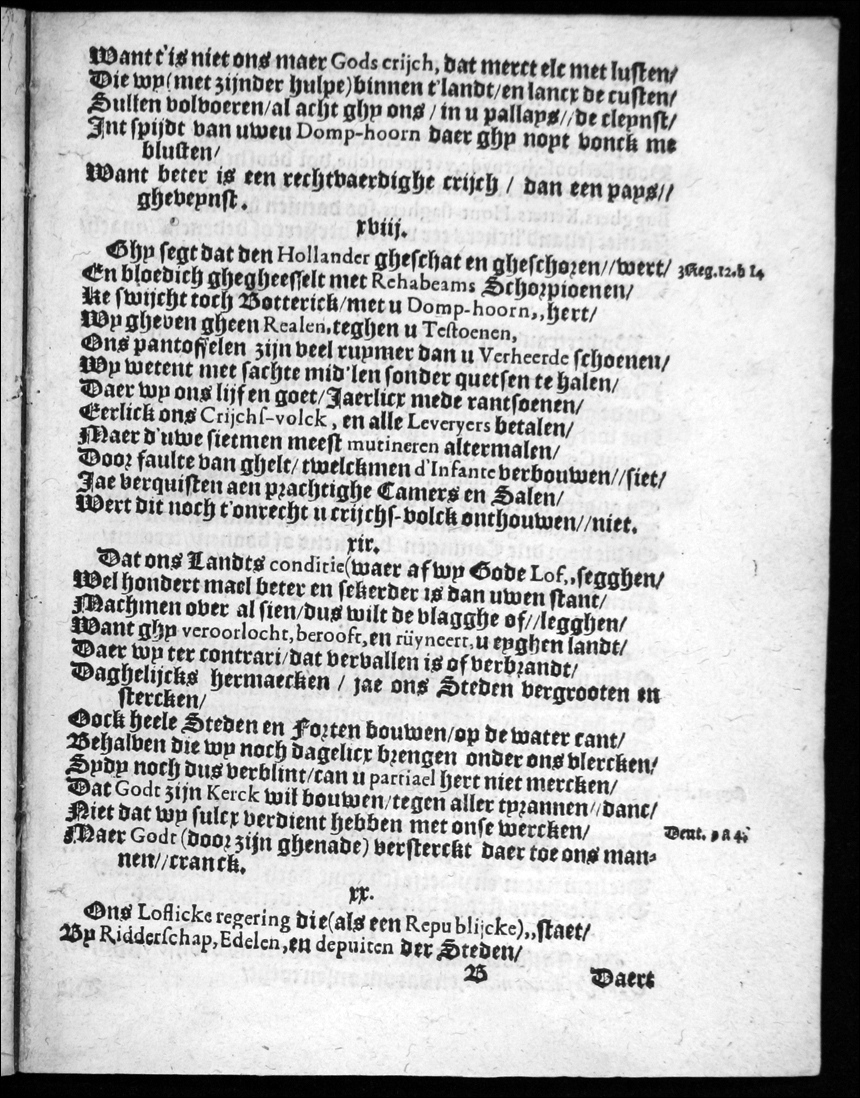 Want t'is niet ons maer Gods crijch, dat merct elc met lusten/
Die wy (met zijnder hulpe) binnen t'landt/en lancx de custen/
Sullen volvoeren/al acht ghy ons / in u pallays//de cleynst/
Int spijdt van uweu Domp-hoorn daer ghy noyt vonck me
blusten/
Want beter is een rechtvaerdighe crijch / dan een pays//
gheveynst.
xviij.
Ghy segt dat den Hollander gheschat en gheschoren//wert/ 3Reg.12.b 14
En bloedich ghegheesselt met Rehabeams Schorpioenen/
Ke swijcht toch Botterick/met u Domp-hoorn,,hert/
Wy gheven gheen Realen,teghen u Testoenen,
Ons pantoffelen zijn veel ruymer dan u Verheerde schoenen/
Wy wetent met sachte mid'len sonder quetsen te halen/
Daer wy ons lijf en goet/Jaerlicx mede rantsoenen/
Eerlick ons Crijchs-volck, en alle Leveryers betalen/
Maer d'uwe sietmen meest mutineren altermalen/
Door faulte van ghelt/ twelckmen d'Infante verbouwen//siet/
Jae verquisten aen prachtighe Camers en Salen/
Wert dit noch t'onrecht u crijchs-volck onthouwen//niet.
xix.
Dat ons Landts conditie (waer af wy Gode Lof,,segghen/
Wel hondert mael beter en sekerder is dan uwen stant/
Machmen over al sien/dus wilt de vlagghe of//legghen/
Want ghy veroorlocht, berooft, en rüyneert,u eyghen landt/
Daer wy ter contrari/dat vervallen is of verbrandt/
Daghelijcks hermaecken / jae ons Steden vergrooten en
stercken/
Oock heele Steden en Forten bouwen/op de water cant/
Behalven die wy noch dagelicx brengen onder ons vlercken/
Sydy noch dus verblint/can u partiael hert niet mercken/
Dat Godt zijn Kerck wil bouwen/tegen aller tyrannen//danc/
Niet dat wy sulcx verdient hebben met onse wercken/ Deut. 9 a 4.
Maer Godt (door zijn ghenade) versterckt daer toe ons man-
nen//cranck.
xx.
Ons Loflicke regering die (als een Republijcke),,staet/
By Ridderschap, Edelen, en depuiten der Steden/
B Daert